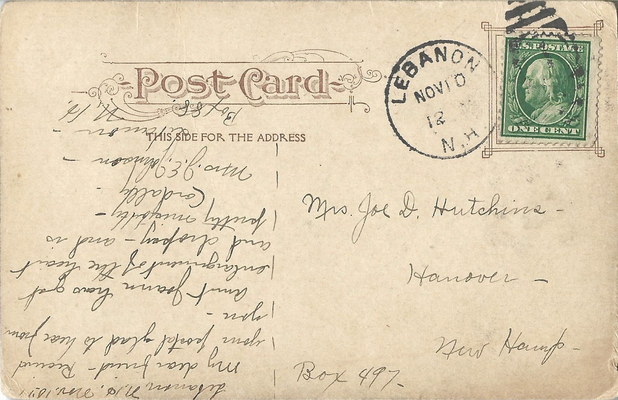 Post Card
THIS SIDE FOR THE ADDRESS
LEBANON
NOV 10
12 M
N.H.
U.S. POSTAGE
ONE CENT
Mrs. Joe D. Hutchins -
Hanover -
New Hamp -
Box 497 -
Lebanon N.H. Nov. 10th
My dear friend - Received
your postal glad to hear from
you -
Aunt Joann has got
enlargement of the heart
and dropsy - and is
pretty miserable -
Cordially -
Mrs. J. E. Johnson -
Lebanon -
Box 88 N.H.